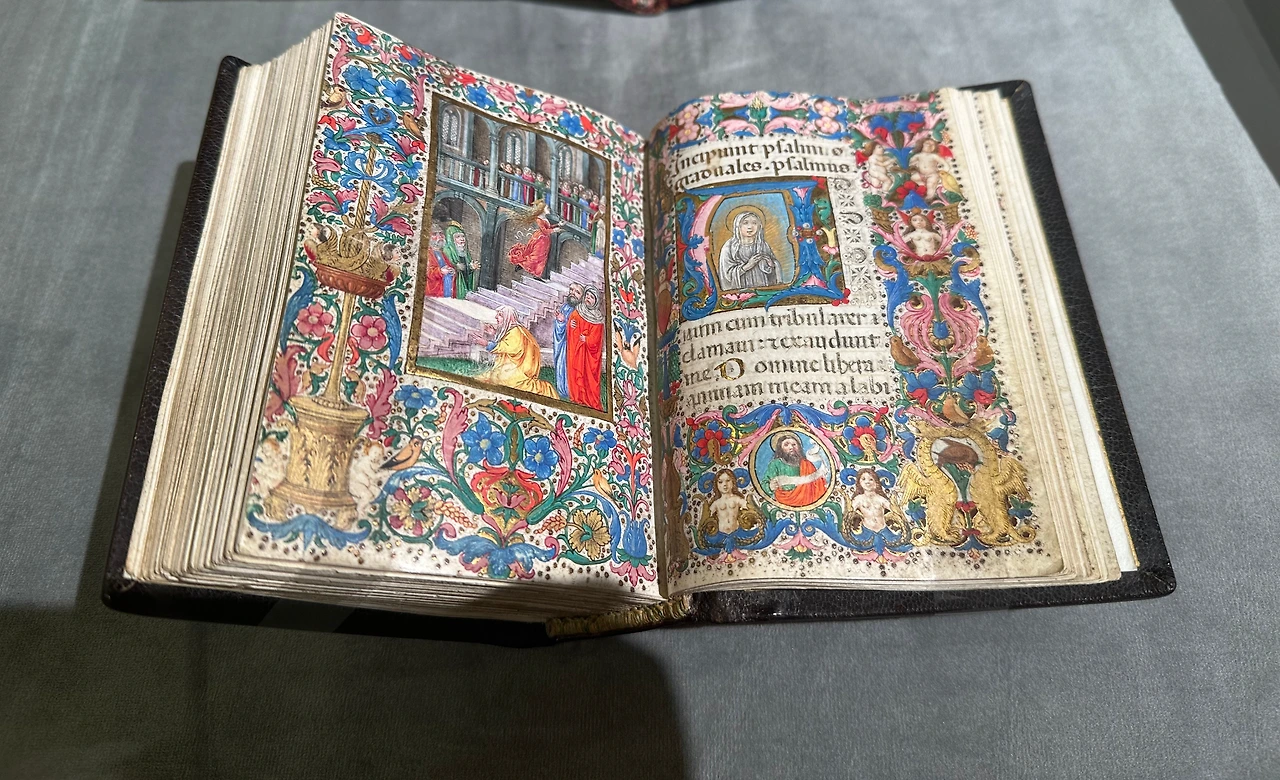 Incipiunt psalmi g
graduales. psalmus.
A
dum cum tribularer
clamaui: et exaudiunt
me Domine libera
animam meam a labi